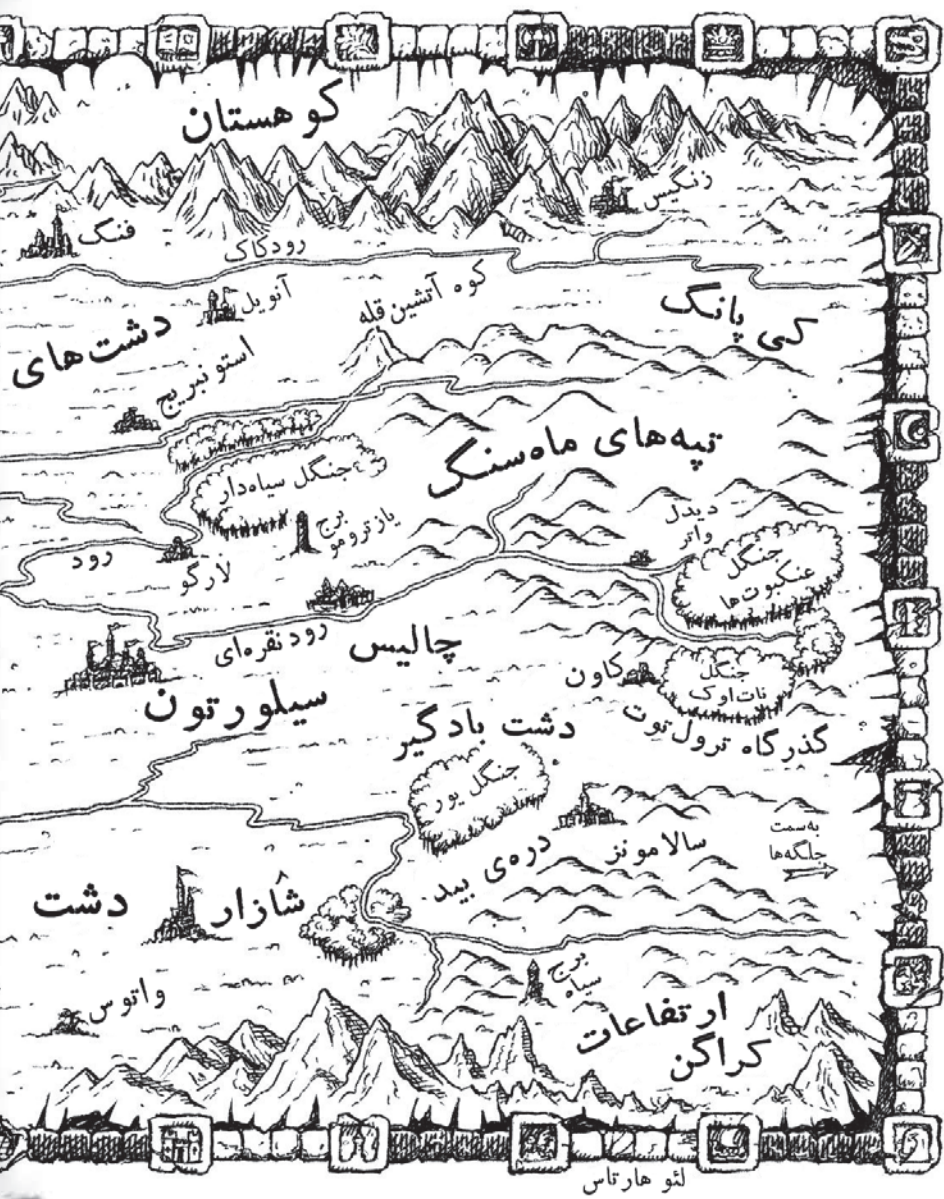 کوهستان
زنگیس
فنگ
رود کاک
آنویل
کوه آتشین قله
کی پانگ
دشت‌های
استونبریج
تپه‌های ماه‌سنگ
جنگل سیاه‌دار
برج
یازترومو
دیدل
واتر
جنگل
عنکبوت‌ها
رود
لارگو
رود نقره‌ای
چالیس
سیلورتون
کاون
جنگل
نات‌اوک
گذرگاه ترول‌توت
دشت بادگیر
جنگل یور
دره‌ی بید
سالامونز
به‌سمت
جلگه‌ها
دشت
شازار
واتوس
برج
سیاه
ارتفاعات
کراگن
لئو هارتاس